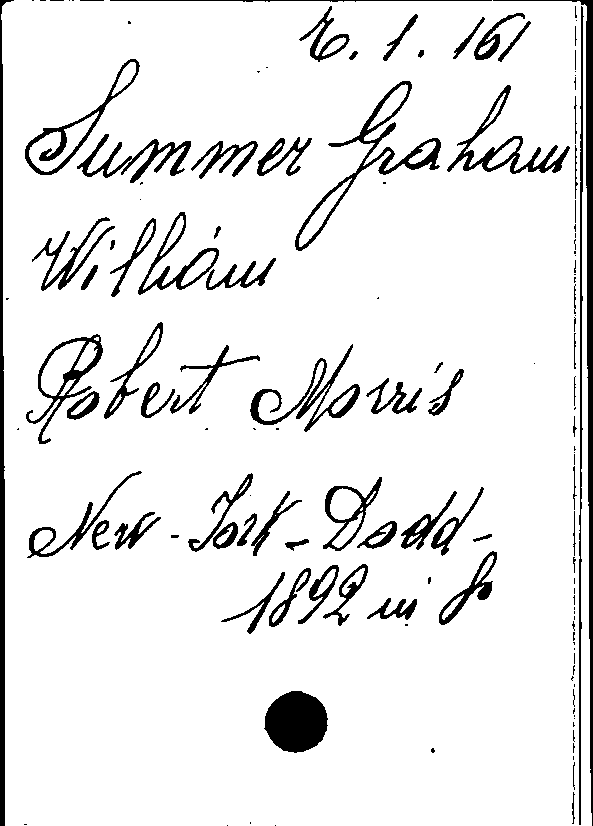 E. 1. 161
Summer Graham
William
Robert Morris
New-York-Dodd-
1892 in 8º